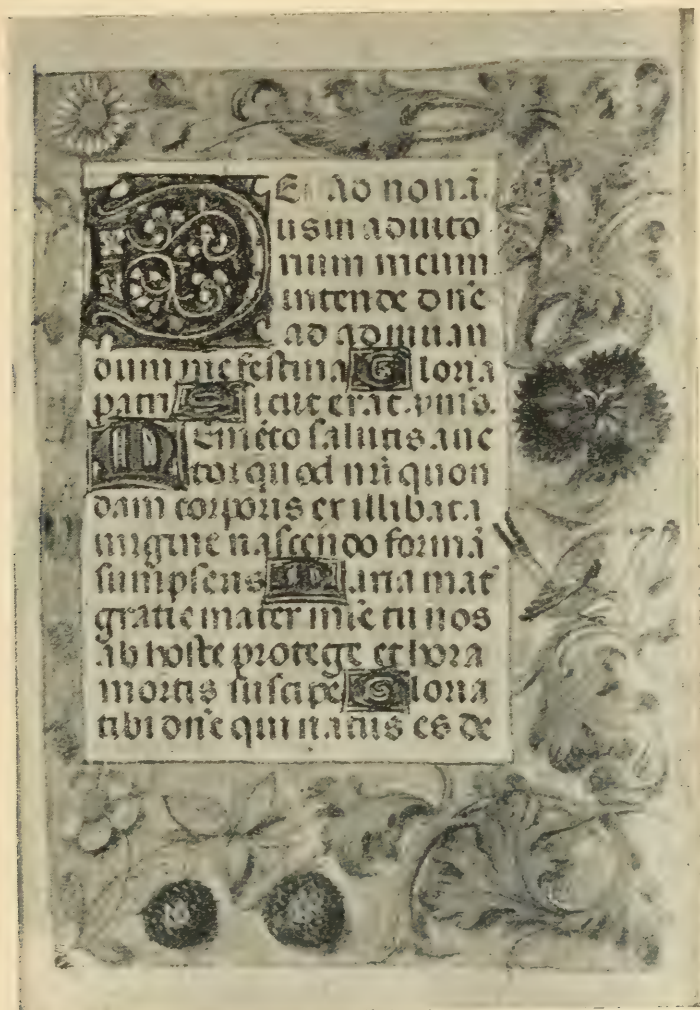 DE Ad nonā.
us in adiuto
rium meum
intende dn̄e
ad adiuuan
dum me festina Gloria
patri Sicut erat. vnis.
Memēto salutis auc
tor quod nr̄i quon
dam corporis ex illibata
uirgine nascendo formā
sumpseris Maria mat̄
gratie mater mīe tu nos
ab hoste protege et hora
mortis suscipe Gloria
tibi dn̄e qui natus es de